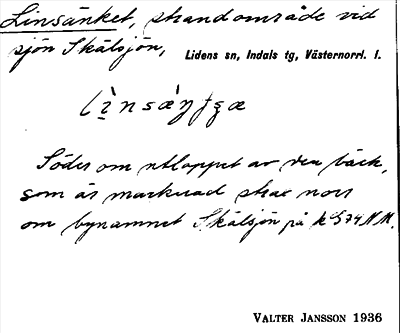 Linsänket, strandområde vid
sjön Skälsjön, Lidens sn, Indals tg, Västernorrl. l.
Söder om utloppet av den bäck,
som är markerad strax norr
om bynamnet Skälsjön på k S 74 N M.
VALTER JANSSON 1936